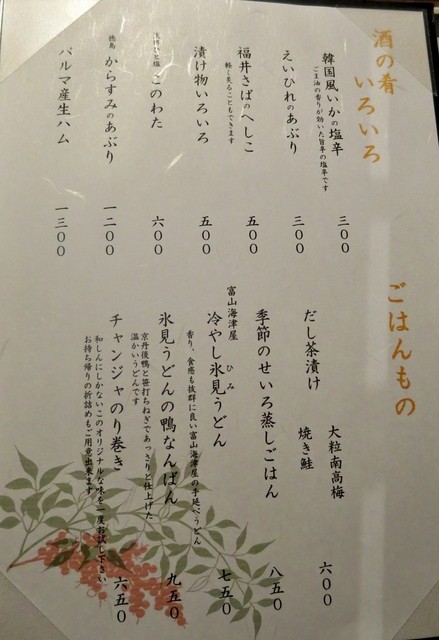 酒の肴
いろいろ
韓国風いかの塩辛
ごま油の香りが効いた旨辛の塩辛です
三〇〇
えいひれのあぶり
三〇〇
福井さばのへしこ
軽く炙ることもできます
五〇〇
漬け物いろいろ
五〇〇
このわた
六〇〇
徳島
からすみのあぶり
一二〇〇
パルマ産生ハム
一三〇〇
ごはんもの
だし茶漬け
大粒南高梅
焼き鮭
六〇〇
季節のせいろ蒸しごはん
八五〇
富山海津屋
冷やし氷見うどん
ひみ
香り、食感も抜群に良い富山海津屋の手延べうどん
七五〇
氷見うどんの鴨なんばん
京丹後鴨と笹打ちねぎであっさりと仕上げた
温かいうどんです
九五〇
チャンジャのり巻き
和しんにしかないこのオリジナルな味を一度お試し下さい
お持ち帰りの折詰めもご用意出来ます
六五〇